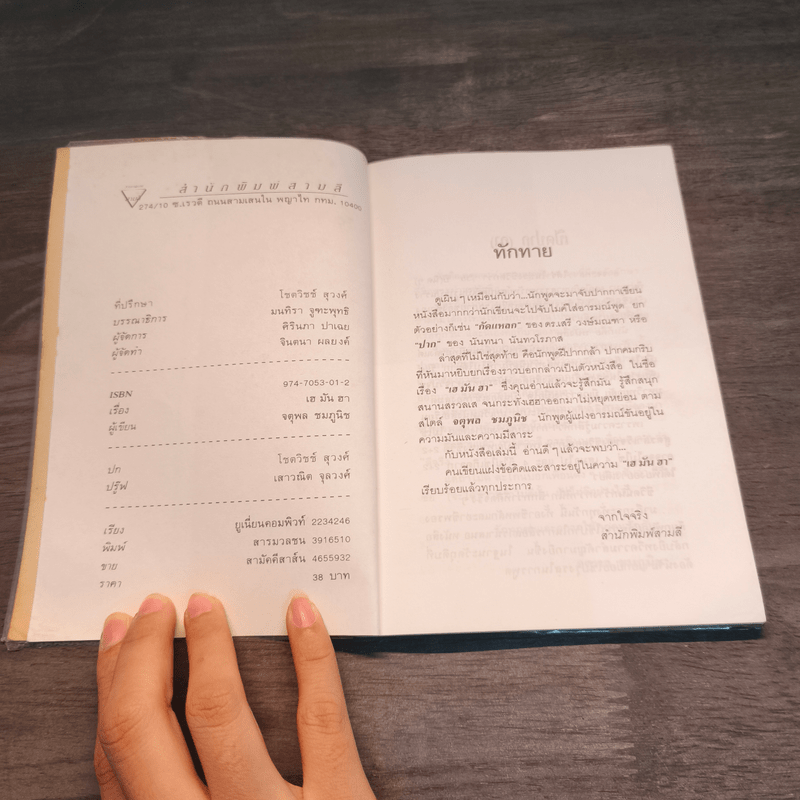 สำนักพิมพ์สามสี
274/10 ซ.เรวดี ถนนสามเสนใน พญาไท กทม. 10400
ที่ปรึกษา โชตวิชช์ สุวงศ์
บรรณาธิการ มนทิรา จูฑะพุทธิ
ผู้จัดการ คิรินภา ปาเฉย
ผู้จัดทำ จินตนา ผลยงค์
ISBN 974-7053-01-2
เรื่อง เฮ มัน ฮา
ผู้เขียน จตุพล ชมภูนิช
ปก โชตวิชช์ สุวงศ์
ปรู๊ฟ เสาวณิต จุลวงศ์
เรียง ยูเนี่ยนคอมพิวท์ 2234246
พิมพ์ สารมวลชน 3916510
ขาย สามัคคีสาส์น 4655932
ราคา 38 บาท
ทักทาย
ดูเผิน ๆ เหมือนกับว่า...นักพูดจะมาจับปากกาเขียน
หนังสือมากกว่านักเขียนจะไปจับไมค์ใส่อารมณ์พูด ยก
ตัวอย่างก็เช่น "กัดแหลก" ของ ดร.เสรี วงษ์มณฑา หรือ
"ปาก" ของ นันทนา นันทวโรภาส
ล่าสุดที่ไม่ใช่สุดท้าย คือนักพูดฝีปากกล้า ปากคมกริบ
ที่หันมาหยิบยกเรื่องราวบอกกล่าวเป็นตัวหนังสือ ในชื่อ
เรื่อง "เฮ มัน ฮา" ซึ่งคุณอ่านแล้วจะรู้สึกมัน รู้สึกสนุก
สนานสรวลเส จนกระทั่งเฮฮาออกมาไม่หยุดหย่อน ตาม
สไตล์ จตุพล ชมภูนิช นักพูดผู้แฝงอารมณ์ขันอยู่ใน
ความมันและความมีสาระ
กับหนังสือเล่มนี้ อ่านดี ๆ แล้วจะพบว่า...
คนเขียนแฝงข้อคิดและสาระอยู่ในความ "เฮ มัน ฮา"
เรียบร้อยแล้วทุกประการ
จากใจจริง
สำนักพิมพ์สามสี